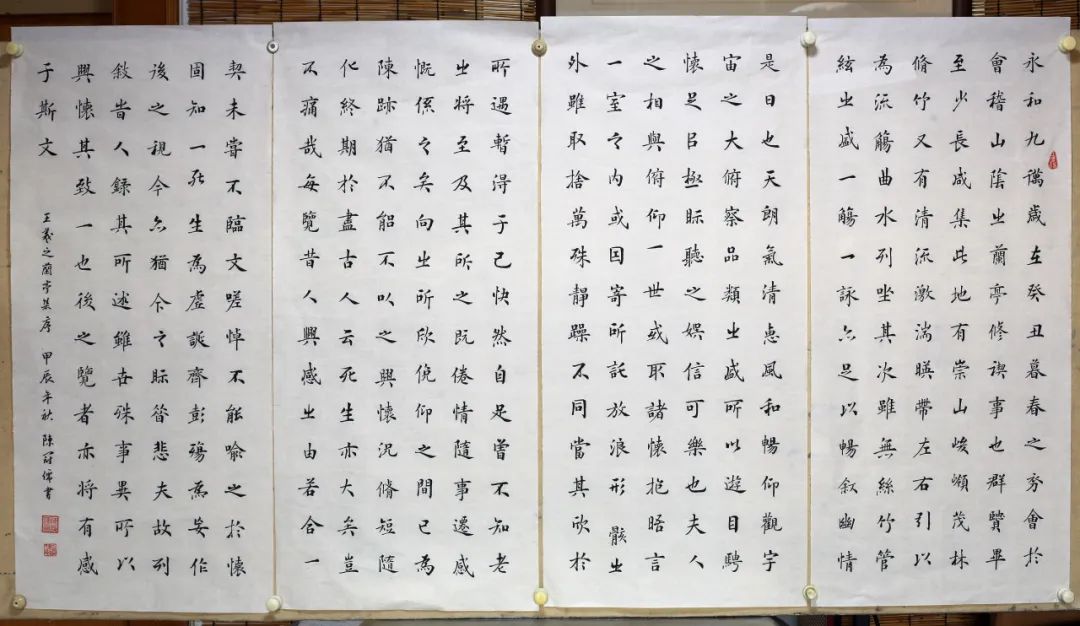 永和九年歲在癸丑暮春之初會於
會稽山陰之蘭亭修禊事也群賢畢
至少長咸集此地有崇山峻嶺茂林
脩竹又有清流激湍暎帶左右引以
為流觴曲水列坐其次雖無絲竹管
絃之盛一觴一詠亦足以暢叙幽情
是日也天朗氣清惠風和暢仰觀宇
宙之大俯察品類之盛所以遊目騁
懷足㠯極眎聽之娛信可樂也夫人
之相與俯仰一世或取諸懷抱晤言
一室之內或因寄所託放浪形骸之
外雖取捨萬殊靜躁不同當其欣於
所遇暫得于己快然自足曾不知老
之將至及其所之既倦情隨事遷感
慨係之矣向之所欣俛仰之間已為
陳跡猶不能不以之興懷況脩短隨
化終期於盡古人云死生亦大矣豈
不痛哉每覽昔人興感之由若合一
契未嘗不臨文嗟悼不能喻之於懷
固知一死生為虛誕齊彭殤為妄作
後之視今亦猶今之眎昔悲夫故列
敘時人錄其所述雖世殊事異所以
興懷其致一也後之覽者亦將有感
于斯文
王羲之蘭亭集序 甲辰年秋 陳冠儒書